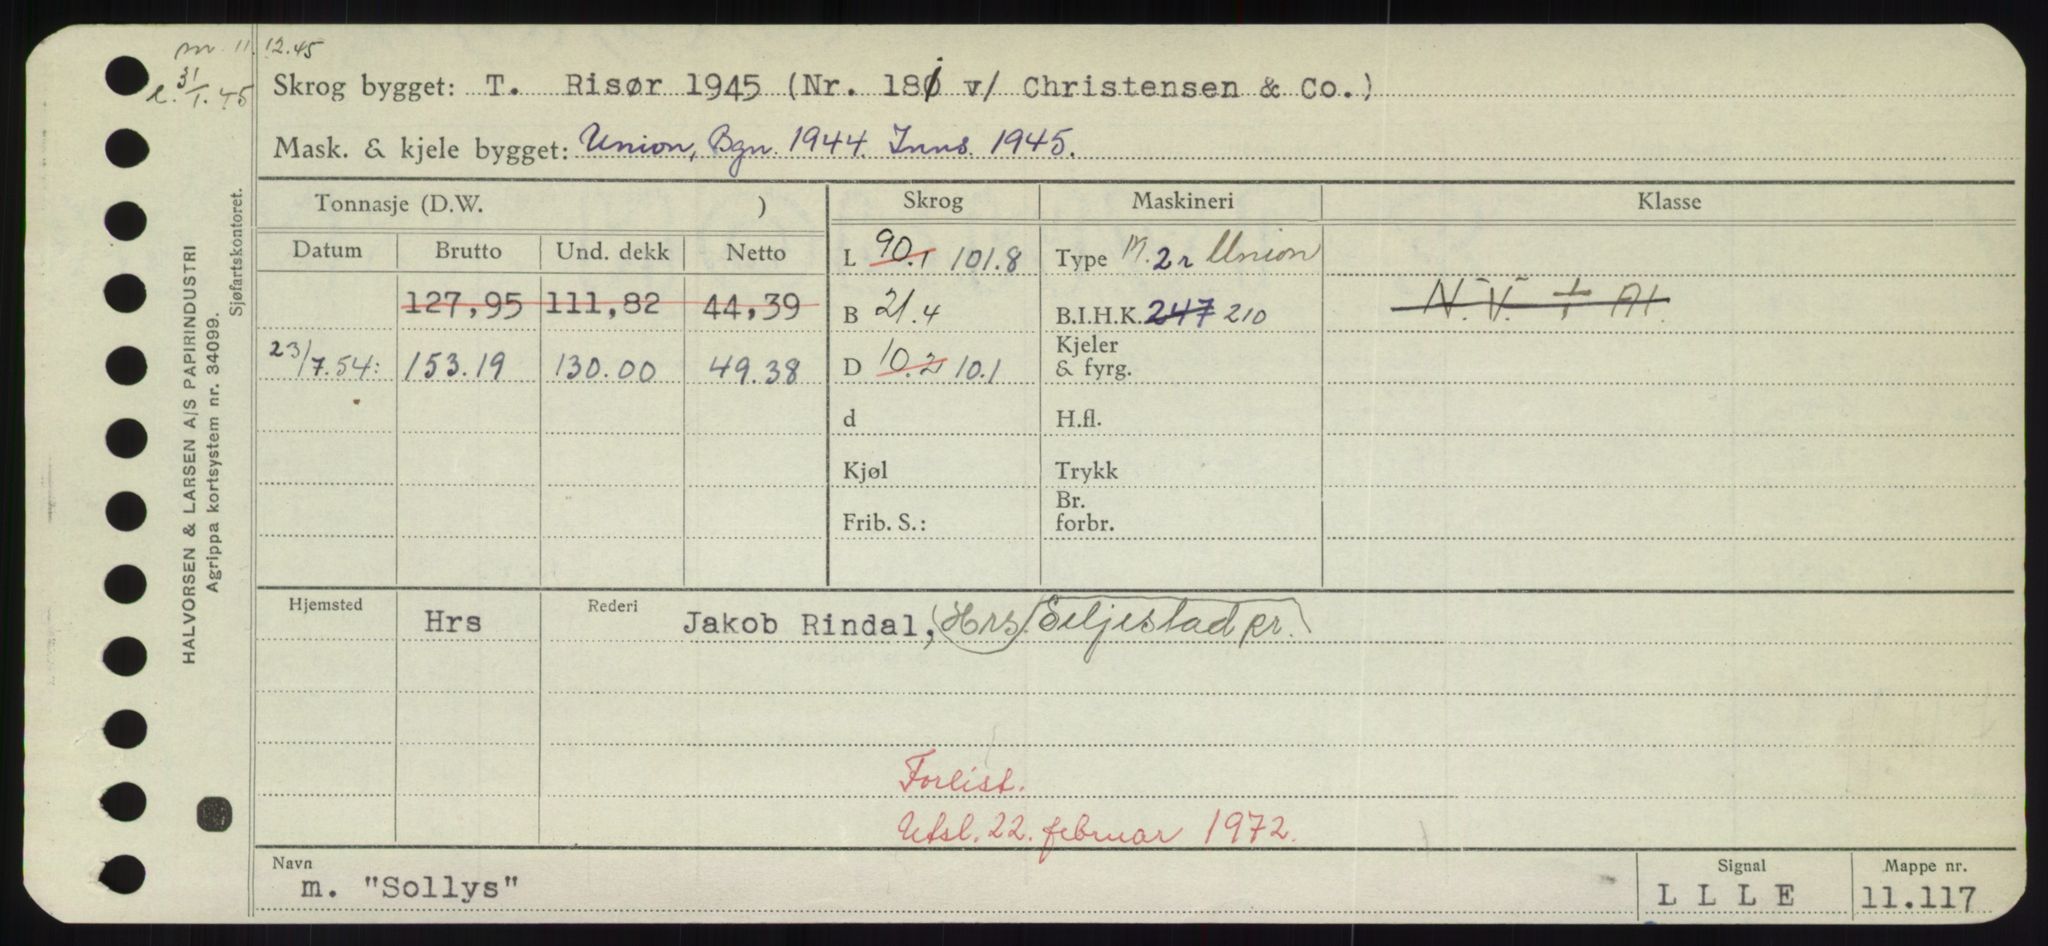 m. 11.12.45
l. 31/1.45
Skrog bygget: T. Risør 1945 (Nr. 181 v/ Christensen & Co.)
Mask. & kjele bygget: Union, Bgn. 1944. Inns. 1945.
Tonnasje (D.W. ) Skrog Maskineri Klasse
Datum Brutto Und. dekk Netto L 90.1 101.8 Type M. 2 r Union
127,95 111,82 44,39 B 21.4 B.I.H.K. 247 210 N.V. + A1.
23/7.54: 153.19 130.00 49.38 D 10.2 10.1 Kjeler
& fyrg.
d H.fl.
Kjøl Trykk
Frib. S.: Br.
forbr.
Hjemsted Hrs Rederi Jakob Rindal, (Hrs.) Seljestad pr.
Forlist.
Utsl. 22. februar 1972.
Navn Signal Mappe nr.
m. "Sollys" L L L E 11.117
HALVORSEN & LARSEN A/S PAPIRINDUSTRI
Agrippa kortsystem nr. 34099.
Sjøfartskontoret.